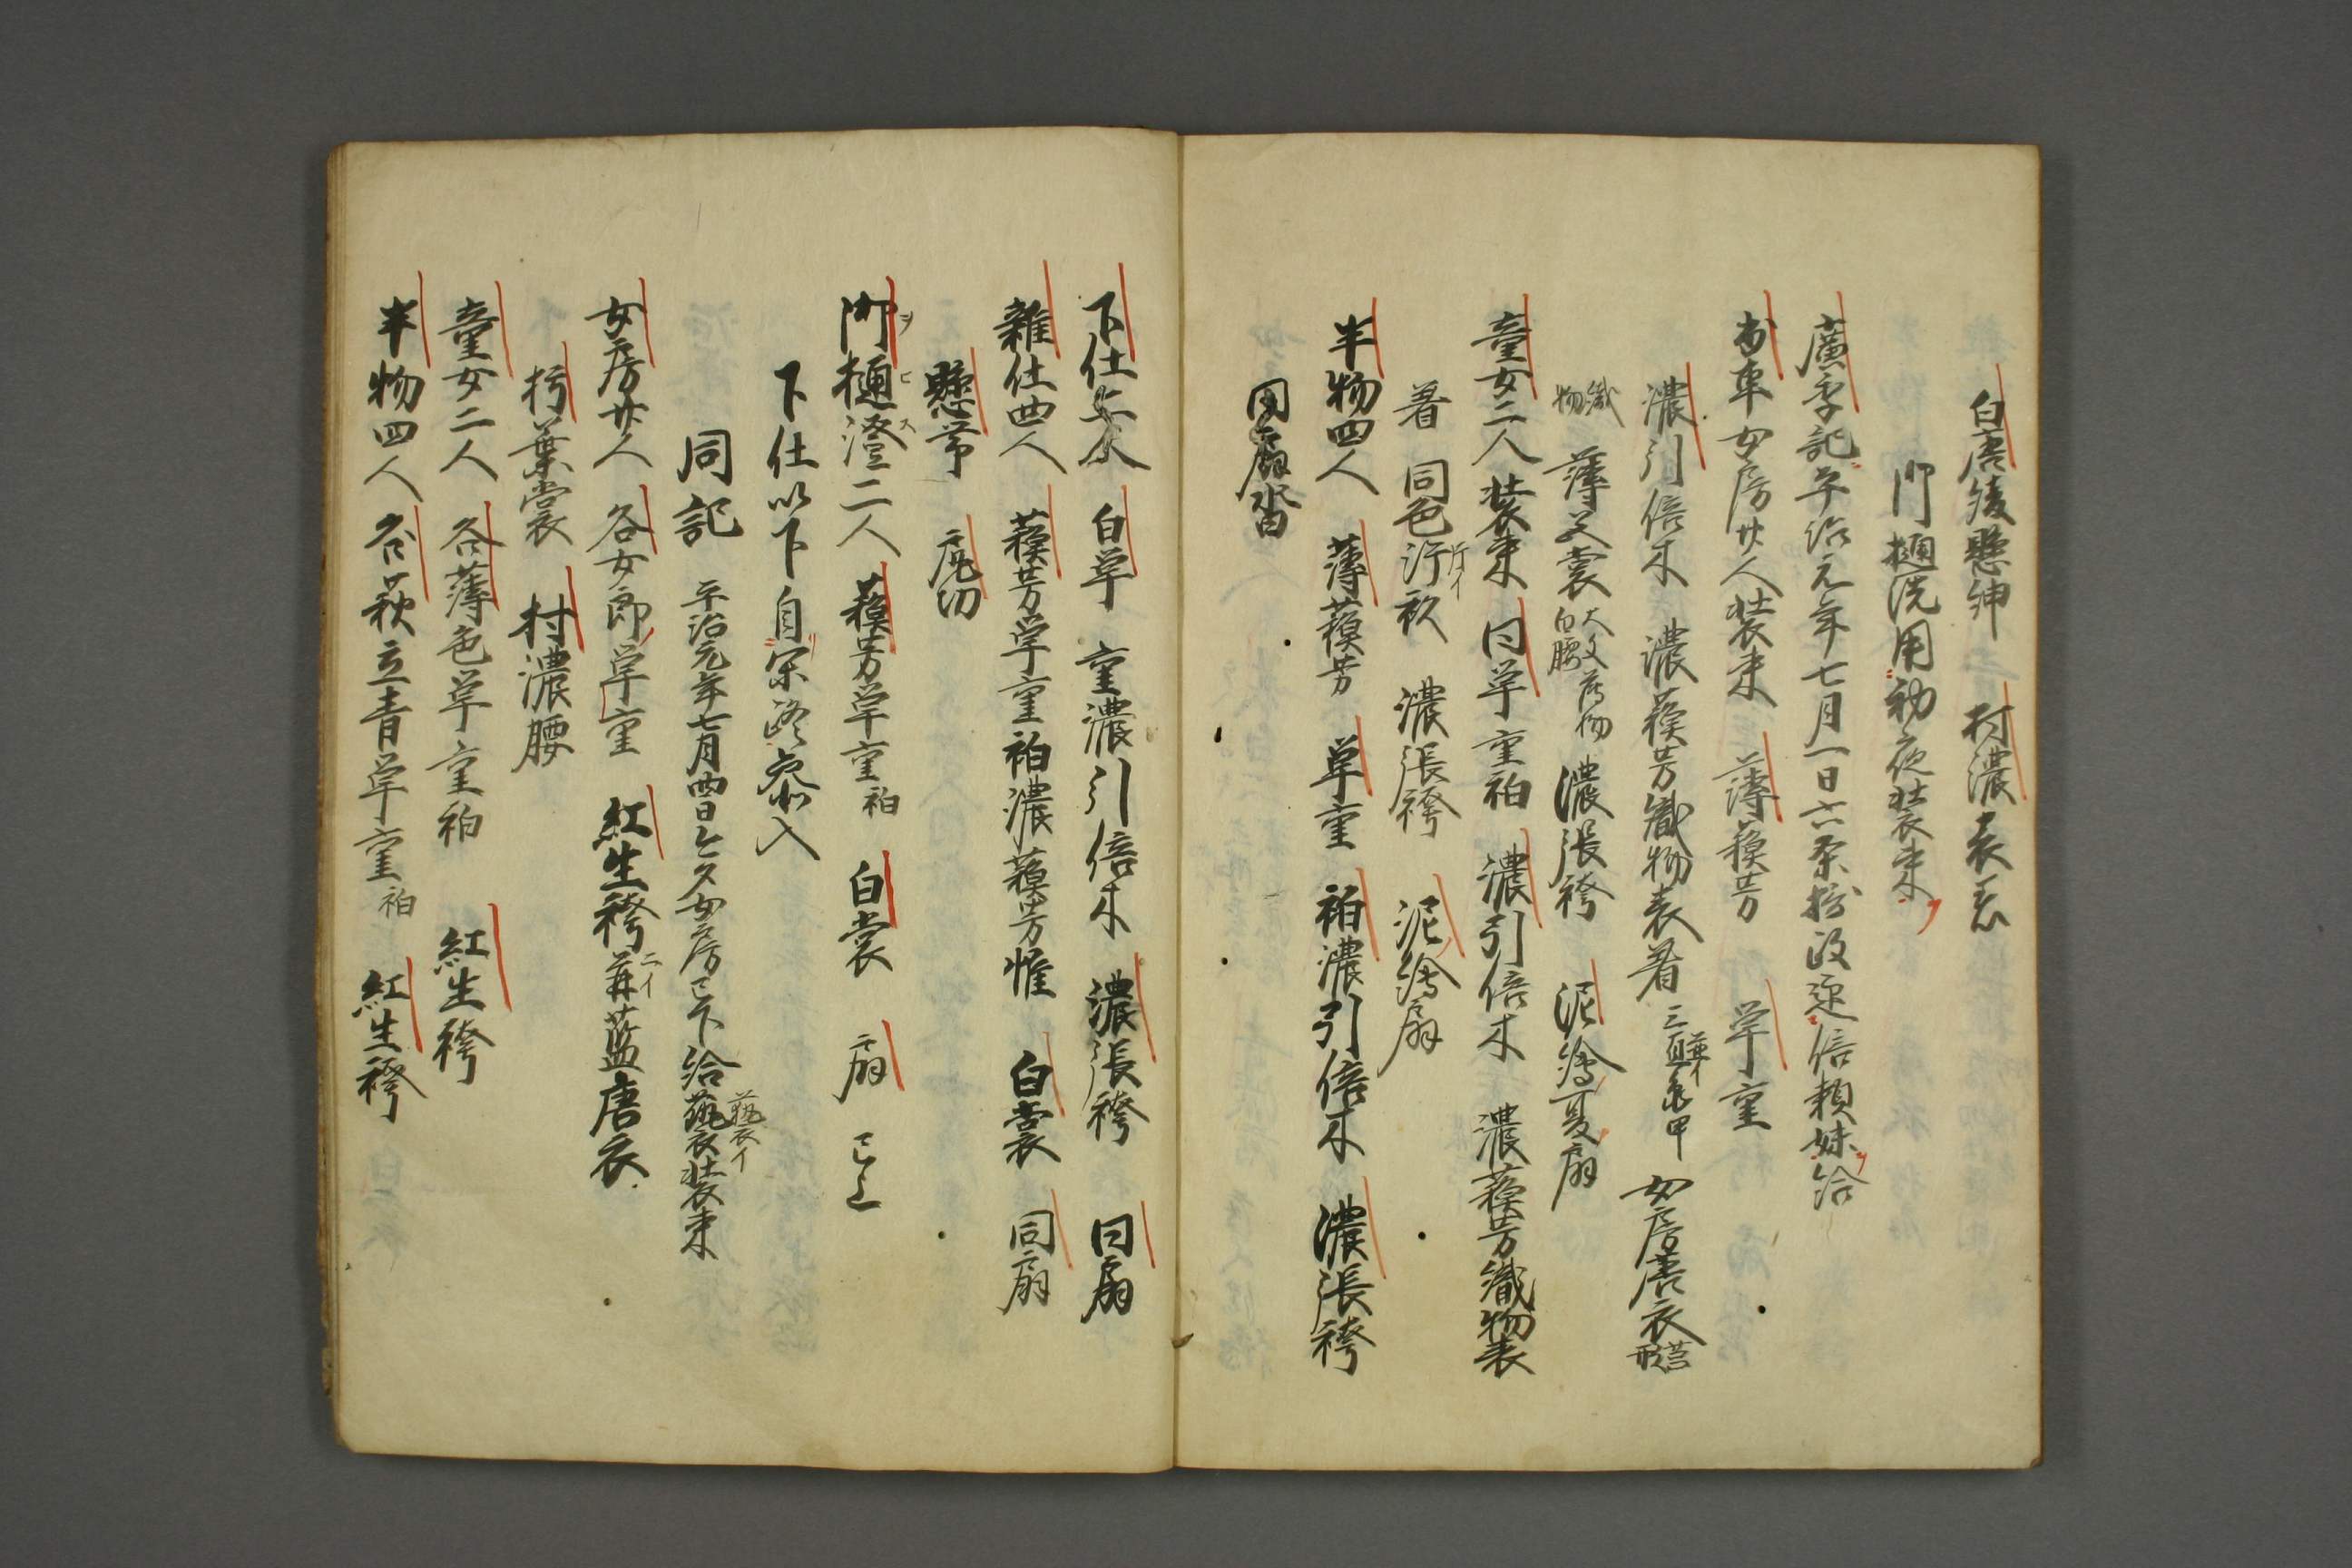 白唐綾懸紳 村濃表着
御樋洗用初夜装束
廣季記平治元年七月一日六条摂政迎信頼妹給
出車女房廿人装束 薄蘓芳 単重
濃引倍木 濃蘓芳織物表着 三重イ 亀甲 女房唐衣
織物 薄色裳 大文 白腰 濃張袴 泥繪夏扇
童女二人装束 同単重袙 濃引倍木 濃蘓芳織物表
着 同色汗衫 濃張袴 泥繪扇
半物四人 薄蘓芳 単重 袙濃引倍木 濃張袴
同扇沓
下仕 白単 重濃引倍木 濃張袴 同扇
雑仕四人 蘓芳単重袙濃蘓芳帷 白裳 同扇
懸帯 尻切
御樋澄二人 蘓芳単重袙 白裳 扇 已上
下仕以下自 参入
同記 平治元年七月四日今夕女房已下給 衣装束
女房廿人 各女郎単重 紅生袴 ニイ 藍唐衣
朽葉裳 村濃腰
童女二人 各薄色単重袙 紅生袴
半物四人 各萩立青単重袙 紅生袴